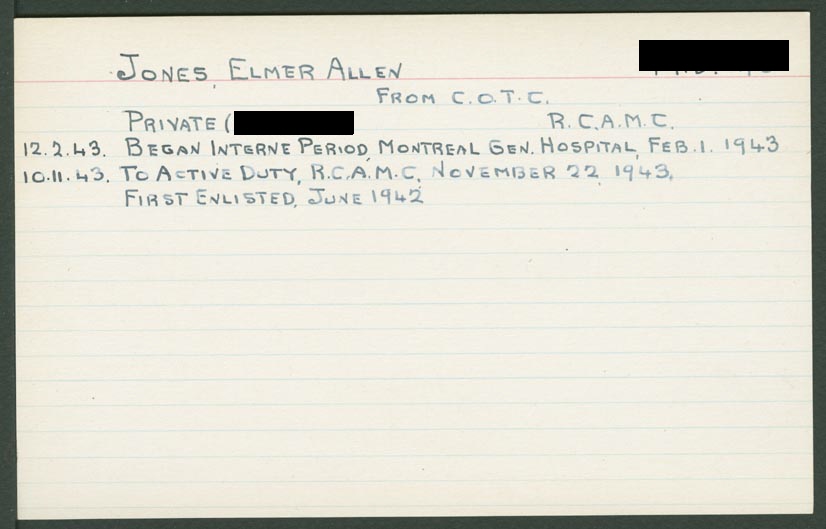 JONES, ELMER ALLEN
FROM C.O.T.C.
PRIVATE ( R.C.A.M.C.
12.2.43. BEGAN INTERNE PERIOD, MONTREAL GEN. HOSPITAL, FEB. 1. 1943
10.11.43. TO ACTIVE DUTY, R.C.A.M.C. NOVEMBER 22, 1943.
FIRST ENLISTED, JUNE 1942